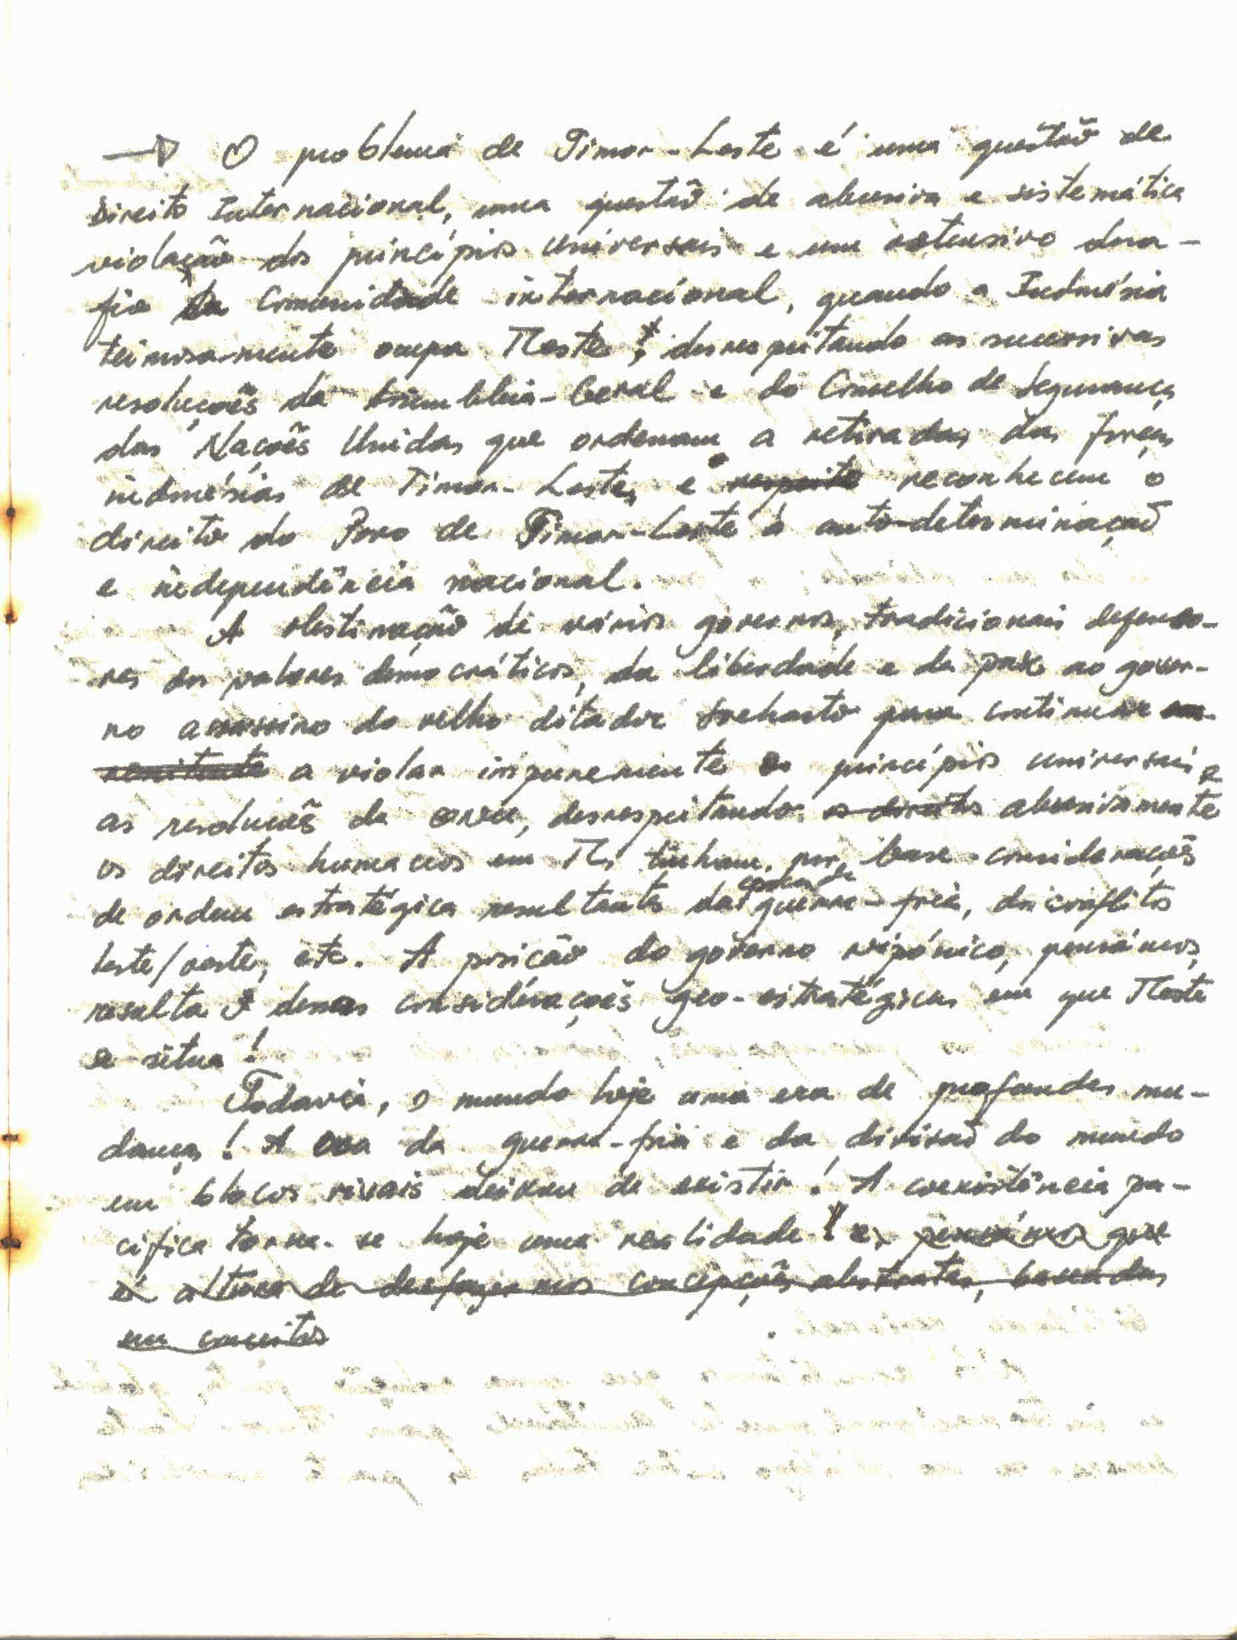 → O problema de Timor-Leste é uma questão de
Direito Internacional, uma questão de abusiva e sistemática
violação dos princípios universais e um ostensivo desa-
fio da Comunidade internacional, quando a Indonésia
teimosamente ocupa TLeste, desrespeitando as sucessivas
resoluções da Assembleia-Geral e do Conselho de Segurança
das Nações Unidas que ordenam a retirada das forças
indonésias de Timor-Leste, e respeito reconhecem o
direito do Povo de Timor-Leste à auto-determinação
e independência nacional.
A obstinação de vários governos, tradicionais defenso-
res dos valores democráticos, da liberdade e da paz ao gover-
no assassino do velho ditador Suharto para continuar
a violar impunemente os princípios universais e
as resoluções da ONU, desrespeitando os direitos abusivamente
os direitos humanos em TL, tinham, por base considerações
de ordem estratégica resultantes da guerra-fria, dos conflitos
leste/oeste, etc. A posição do governo nipónico, pensámos,
resulta dessas considerações geo-estratégicas em que TLeste
se situa!
Todavia, o mundo hoje uma era de profundas mu-
danças! A era da guerra-fria e da divisão do mundo
em blocos rivais deixou de existir! A coexistência pa-
cífica torna-se hoje uma realidade! e, pensámos que
é altura de desfazermos concepções abstratas, baseadas
em conceitos